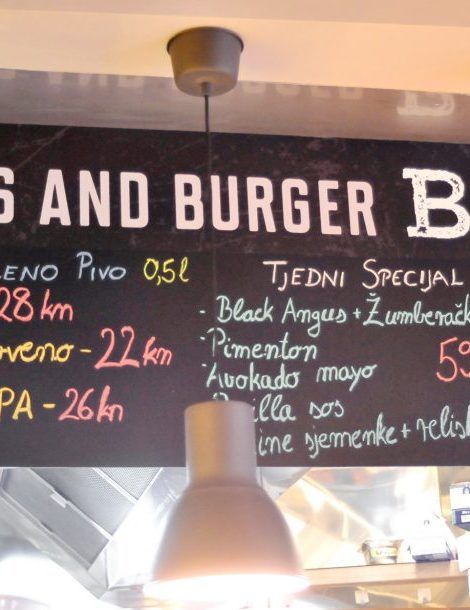 S AND BURGER B
LENO PIVO 0,5l
28 kn
rveno - 22 kn
PA - 26 kn
TJEDNI SPECIJAL
- Black Angus + Žumberačk
- Pimenton
- Avokado mayo
59
illa sos
ine sjemenke + relish